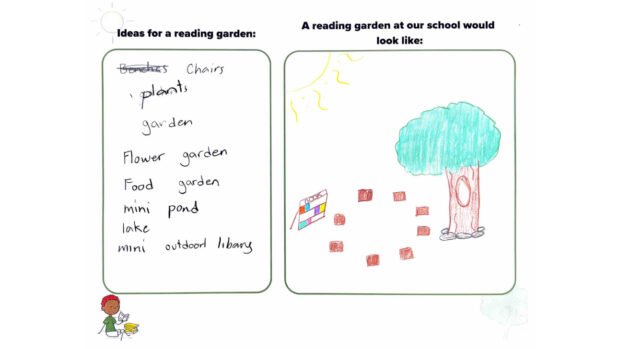 Ideas for a reading garden:
Benches Chairs
plants
garden
Flower garden
Food garden
mini pond
lake
mini outdoorl libary
A reading garden at our school would
look like: